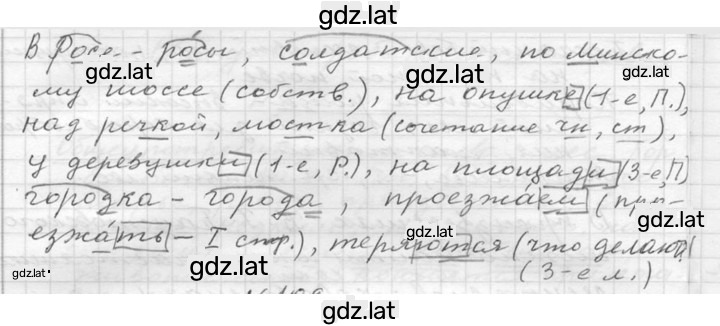 gdz.lat
В Росе - росы, солдатские, по Минско-
gdz.lat gdz.lat
му шоссе (собств.), на опушке (1-е, П.),
над речкой, мостка (сочетание чн, ст),
gdz.lat gdz.lat
у деревушки (1-е, Р.), на площади (3-е, П)
городка - города, проезжаем (
gdz.lat
езжать - I спр.), теряются (что делают?
gdz.lat gdz.lat
(3-е л.)
gdz.lat